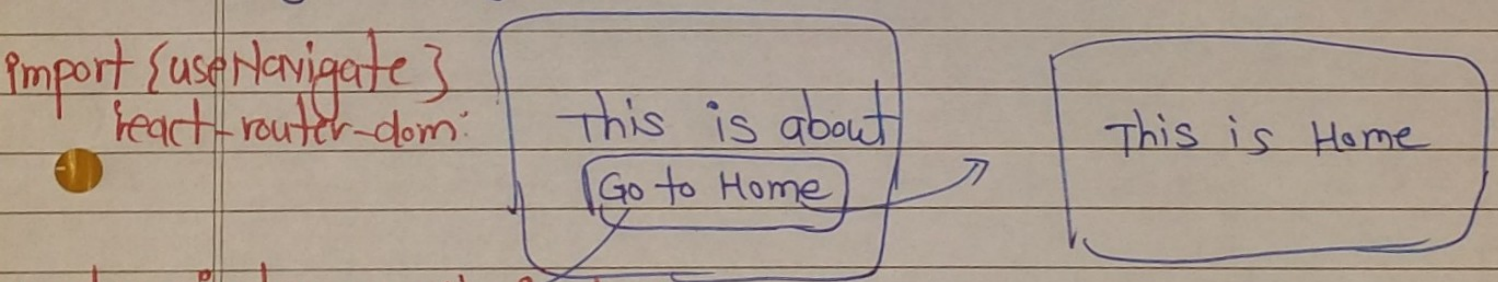 import {useNavigate}
react-router-dom:
This is about
Go to Home
This is Home